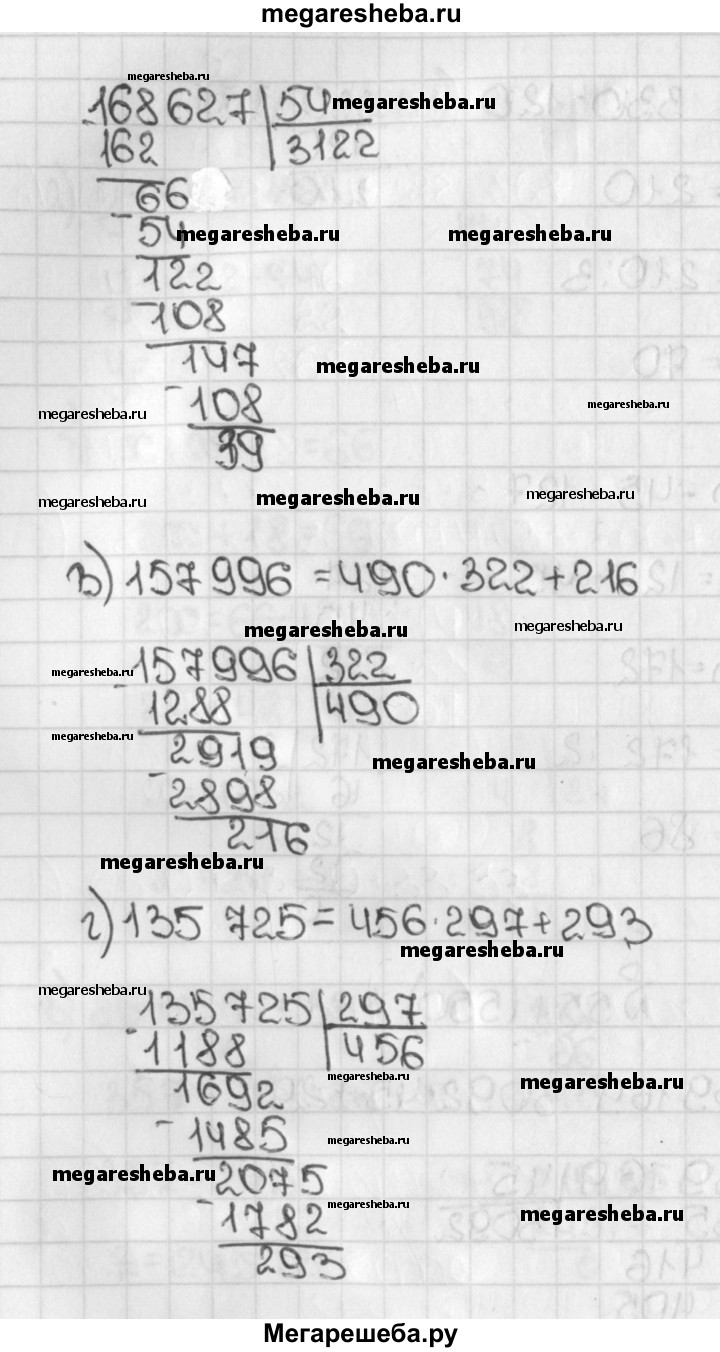 megaresheba.ru
megaresheba.ru
168627 54 megaresheba.ru
162 3122
66
54 megaresheba.ru megaresheba.ru
122
108
147 megaresheba.ru
megaresheba.ru 108 megaresheba.ru
39
megaresheba.ru megaresheba.ru megaresheba.ru
в) 157 996 = 490 · 322 + 216
megaresheba.ru megaresheba.ru
megaresheba.ru 157996 322
1288 490
megaresheba.ru 2919 megaresheba.ru
2898
216
megaresheba.ru
г) 135 725 = 456 · 297 + 293
megaresheba.ru
megaresheba.ru 135725 297
1188 456
1692 megaresheba.ru megaresheba.ru
1485 megaresheba.ru
megaresheba.ru 2075
1782 megaresheba.ru megaresheba.ru
293
Мегарешеба.ру